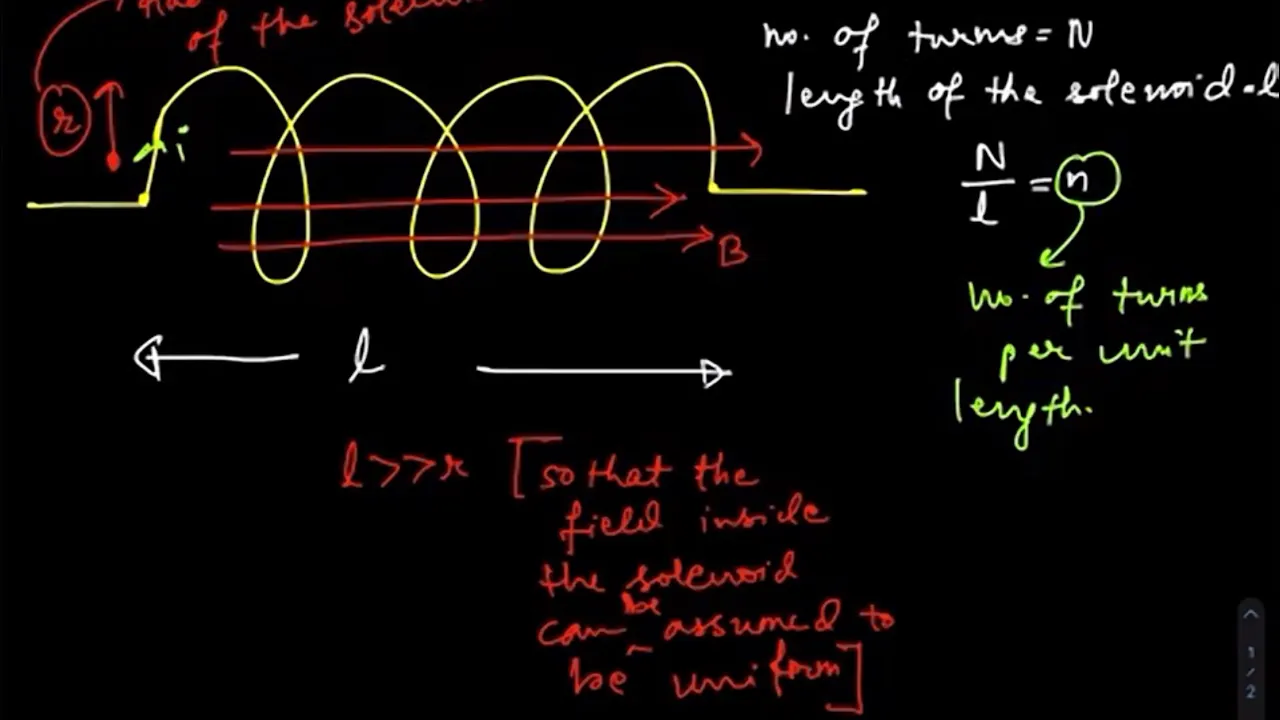 of the
no. of turns = N
length of the solenoid = l
r
i
N
l
= n
B
no. of turns
per unit
length.
l
l >> r [so that the
field inside
the solenoid
can be assumed to
be uniform]
1
/
2